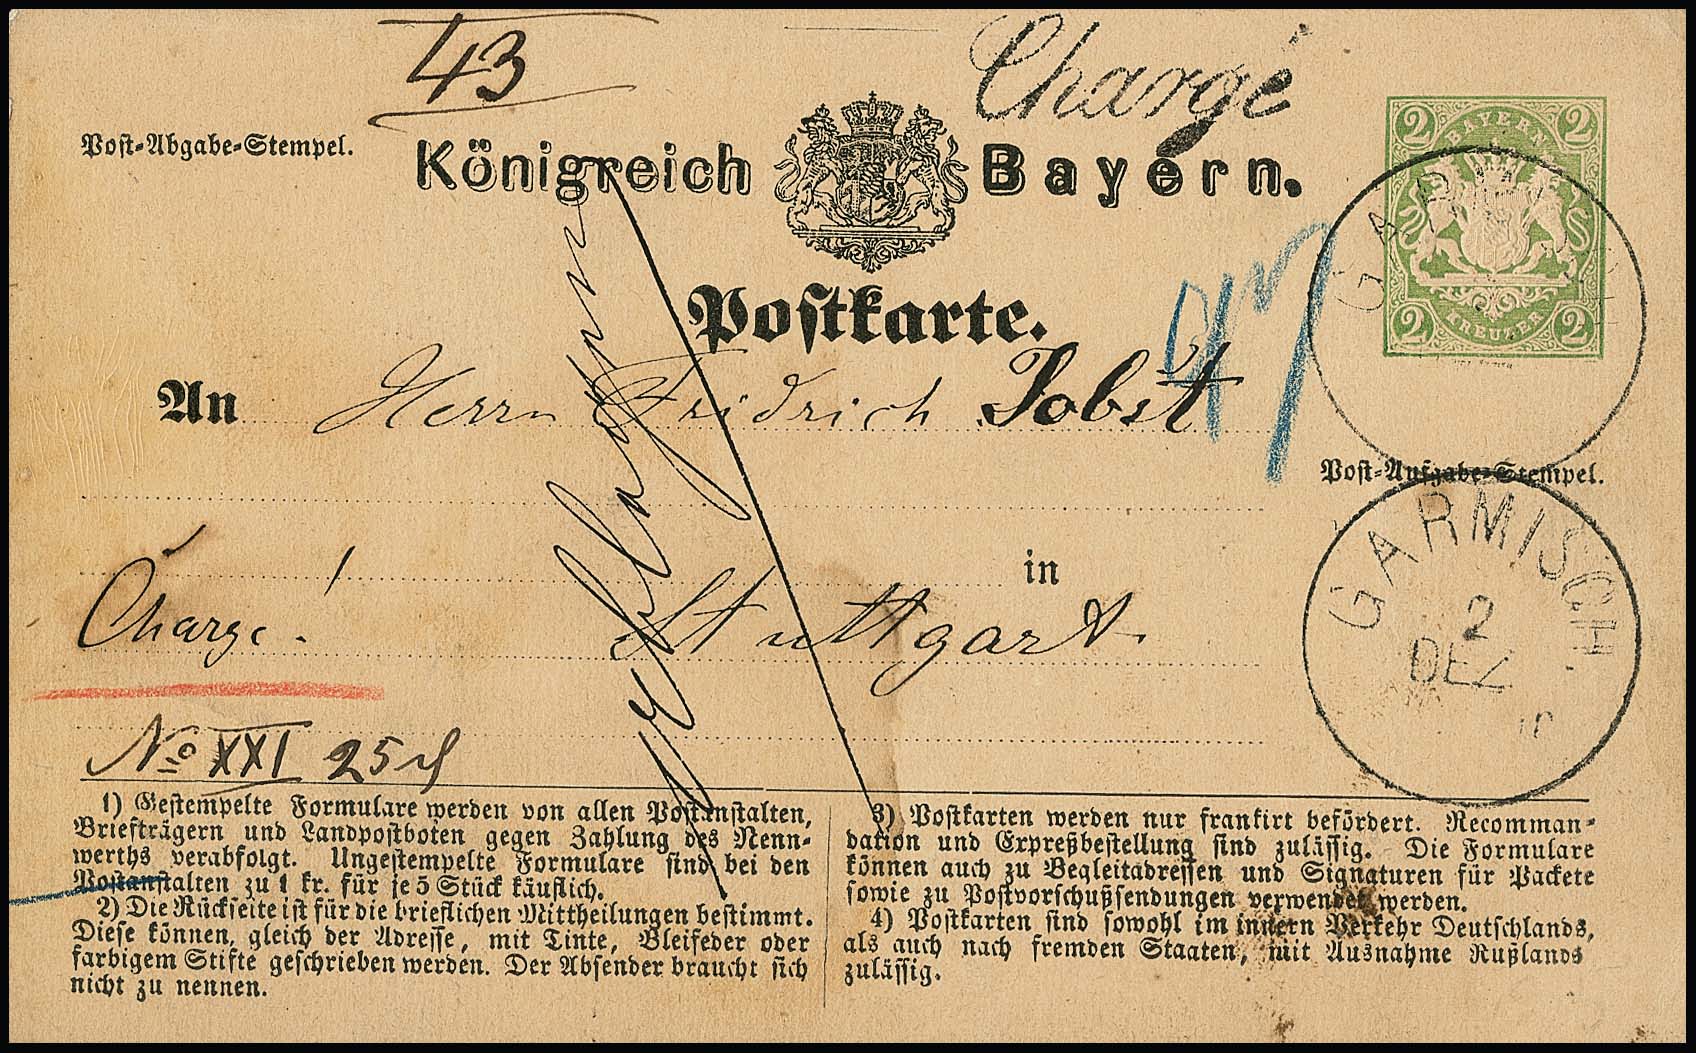 43
Chargé
Post-Abgabe-Stempel.
Königreich Bayern.
2 BAYERN 2
2 KREUZER 2
GARMISCH
Postkarte.
An Herrn Fridrich Jobst
Post-Aufgabe-Stempel.
GARMISCH
2
DEZ
in
Chargé! Stuttgart
No XXI 25
1) Gestempelte Formulare werden von allen Postanstalten,
Briefträgern und Landpostboten gegen Zahlung des Nenn-
werths verabfolgt. Ungestempelte Formulare sind bei den
Postanstalten zu 1 kr. für je 5 Stück käuflich.
2) Die Rückseite ist für die brieflichen Mittheilungen bestimmt.
Diese können, gleich der Adresse, mit Tinte, Bleifeder oder
farbigem Stifte geschrieben werden. Der Absender braucht sich
nicht zu nennen.
3) Postkarten werden nur frankirt befördert. Recomman-
dation und Expreßbestellung sind zulässig. Die Formulare
können auch zu Begleitadressen und Signaturen für Packete
sowie zu Postvorschußsendungen verwendet werden.
4) Postkarten sind sowohl im innern Verkehr Deutschlands,
als auch nach fremden Staaten, mit Ausnahme Rußlands
zulässig.